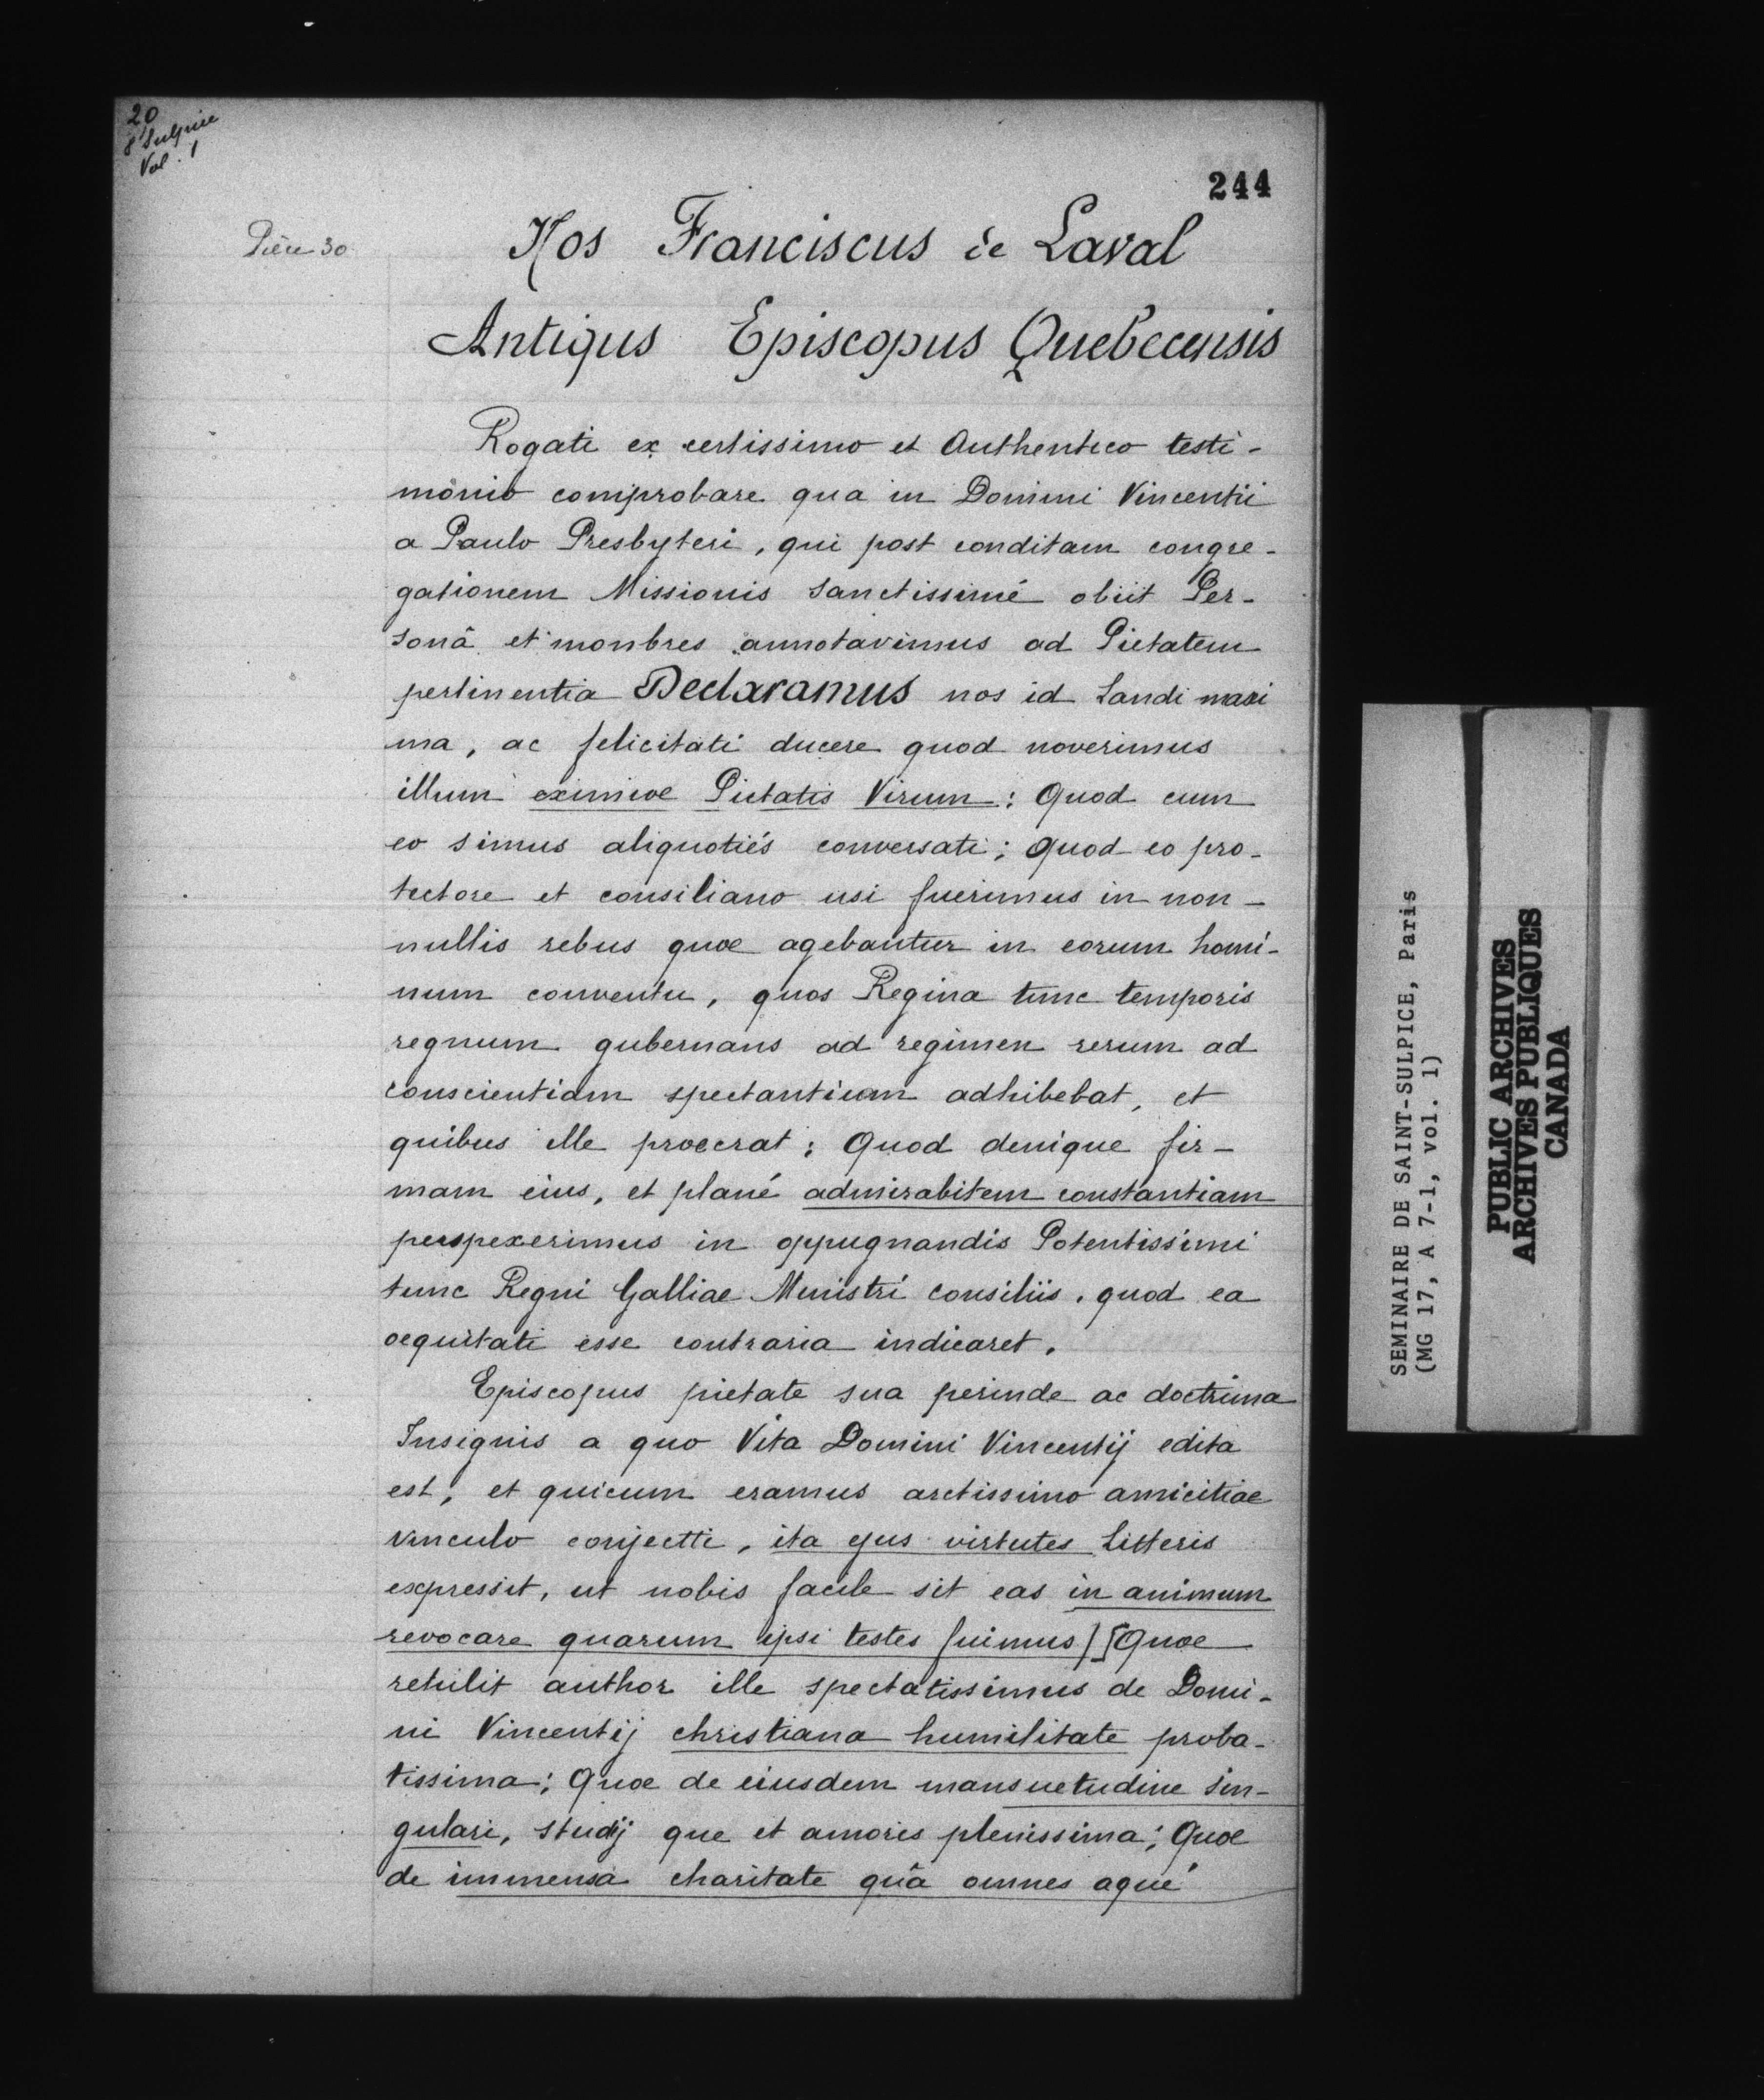 20
St Sulpice
Vol. 1
244
Pièce 30
Nos Franciscus de Laval
Antiqus Episcopus Quebecensis
Rogati ex certissimo et Authentico testi-
monio comprobare qua in Domini Vincentii
a Paulo Presbyteri, qui post conditam congre-
gationem Missionis sanctissimé obiit Per-
sonâ et monbres annotavimus ad Pietatem
pertinentia Declaramus nos id Laudi maxi
ma, ac felicitati ducere quod noverimus
illum eximioe Pietatis Virum : Quod cum
eo simus aliquotiés conversati ; Quod eo pro-
tectore et consiliano usi fuerimus in non-
nullis rebus quoe agebantur in eorum homi-
num conventu, quos Regina tunc temporis
regnum gubernans ad regimen rerum ad
conscientiam spectantium adhibebat, et
quibus ille proeerat : Quod denique fir-
mam eius, et plané admirabitem constantiam
perspexerimus in oppugnandis Potentissimi
tunc Regni Galliae Ministri consiliis, quod ea
oequitati esse contraria indicaret.
Episcopus pietate sua perinde ac doctrina
Insignis a quo Vita Domini Vincentij edita
est, et quicum eramus arctissimo amicitiae
vinculo conjectti, ita ejus virtutes Litteris
expressit, ut nobis facile sit eas in animum
revocare quarum ipsi testes fuimus] [Quoe
retulit author ille spectatissimus de Domi-
ni Vincentij christiana humilitate proba-
tissima ; Quoe de eiusdem mansuetudine sin-
gulari, studij que et amoris plenissima ; Quoe
de immensa charitate quâ omnes aqué
SEMINAIRE DE SAINT-SULPICE, Paris
(MG 17, A 7-1, vol. 1)
PUBLIC ARCHIVES
ARCHIVES PUBLIQUES
CANADA